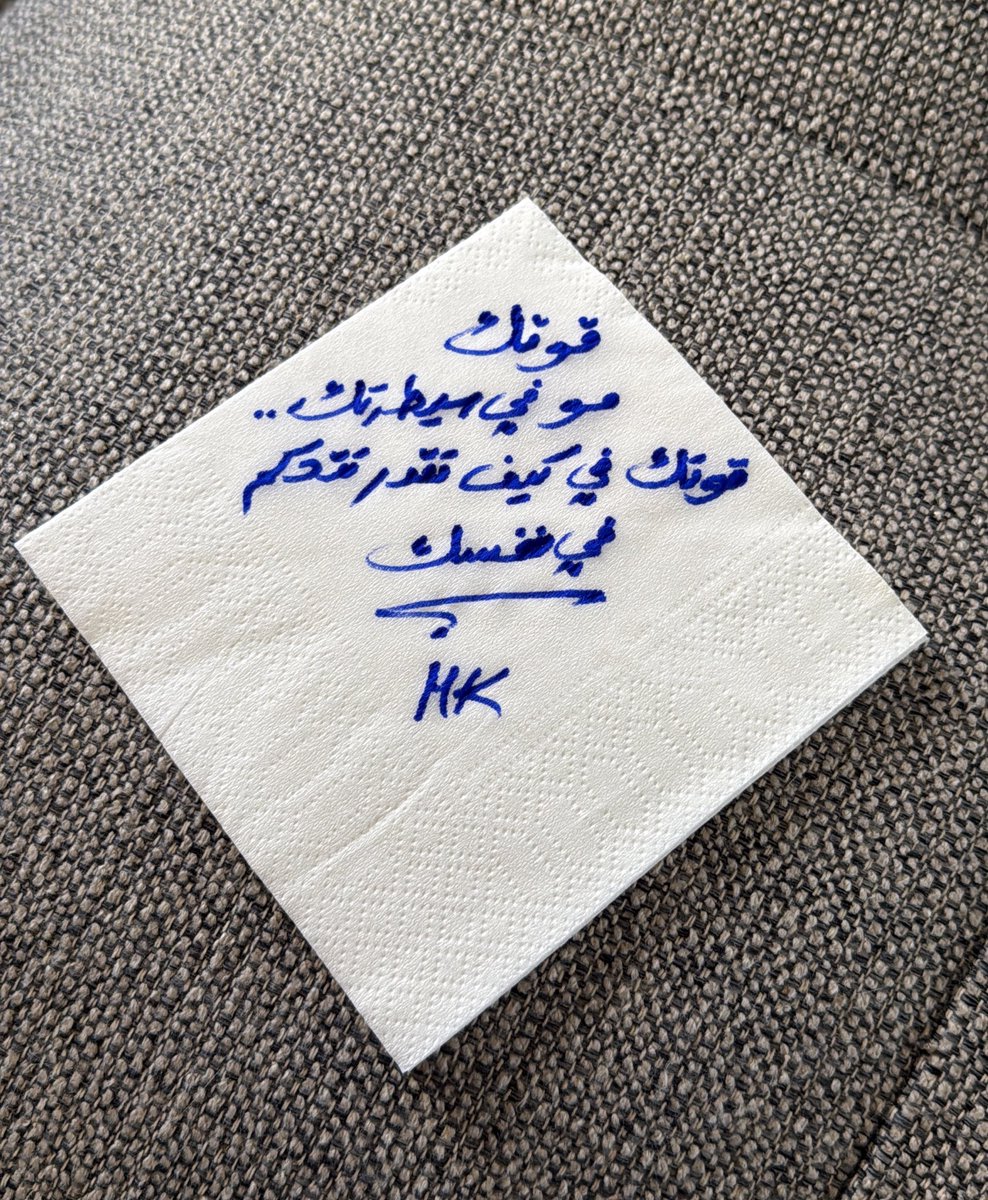 قوتك
مو في سيطرتك..
قوتك في كيف تقدر تتحكم
في نفسك
HK